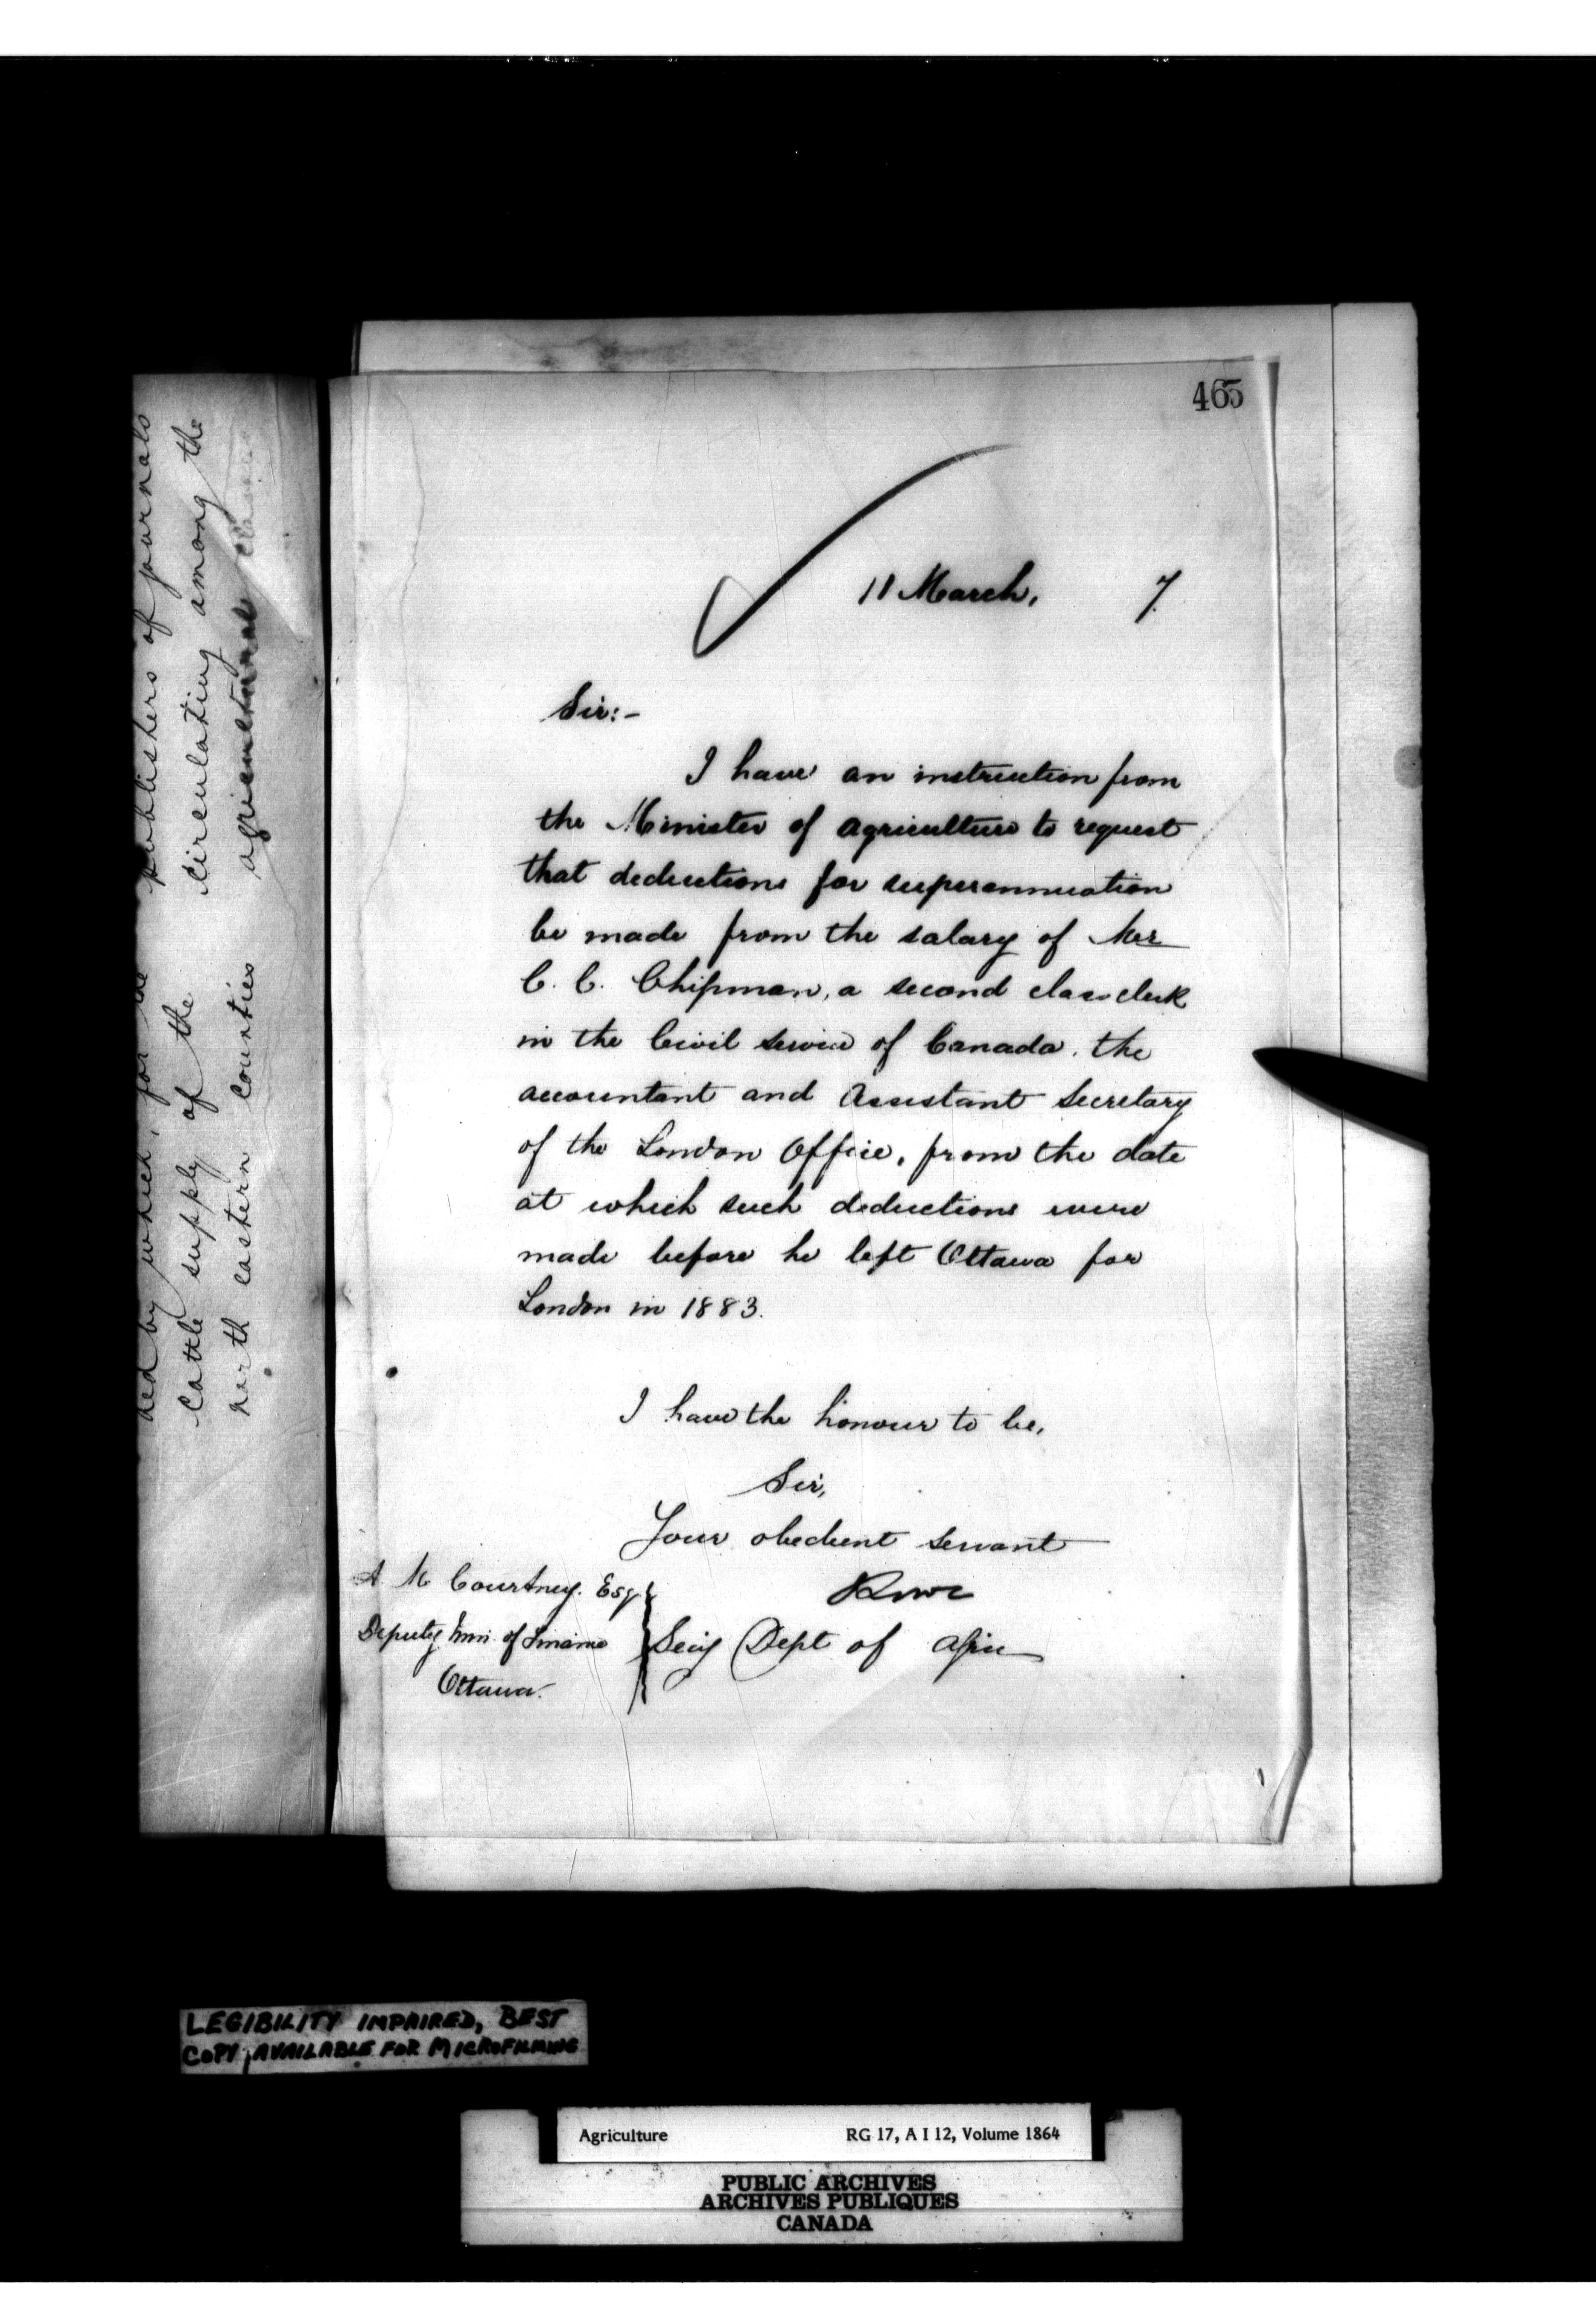 465
11 March, 7.
Sir:-
I have an instruction from
the Minister of Agriculture to request
that deductions for superannuation
be made from the salary of Mr
C. C. Chipman, a second class clerk
in the Civil Service of Canada, the
accountant and Assistant Secretary
of the London Office, from the date
at which such deductions were
made before he left Ottawa for
London in 1883.
I have the honour to be,
Sir,
Your obedient servant
Secy Dept of Agric
Courtney. Esq
Deputy Min of Finance
Ottawa.
publishers of journals
circulating among the
agricultural
by which, for the
cattle supply of the
north eastern counties
LEGIBILITY IMPAIRED, BEST
COPY AVAILABLE FOR MICROFILMING
Agriculture RG 17, A I 12, Volume 1864
PUBLIC ARCHIVES
ARCHIVES PUBLIQUES
CANADA